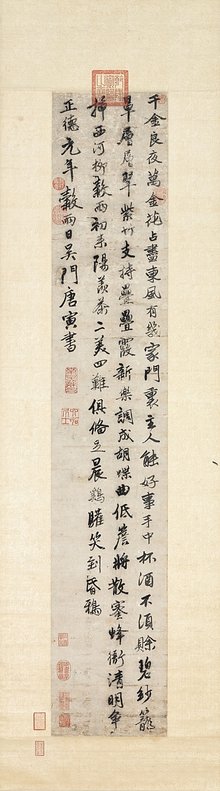 千金良夜萬金花占盡東風有幾家門裏主人能好事手中杯酒不須賒碧紗籠
罩層層翠紫竹支持疊疊霞新樂調成胡蝶曲低簷將散蜜蜂衙清明爭
插西河柳穀雨初來陽羨茶二美四難俱備足晨鷄矃笑到昏鴉
正德元年穀雨日吳門唐寅書